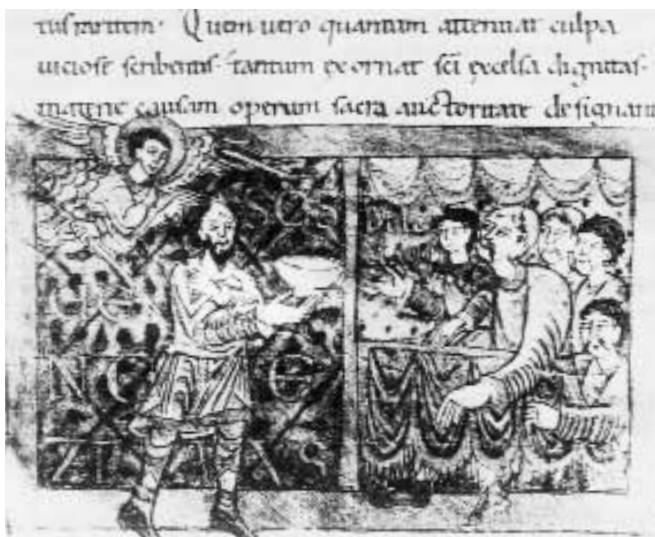 Quem uero quantum attenuat culpa
uiciose scribentis· tantum exornat sci excelsa dignitas·
materie causam operum sacra auctoritate designant
SCS
NC E